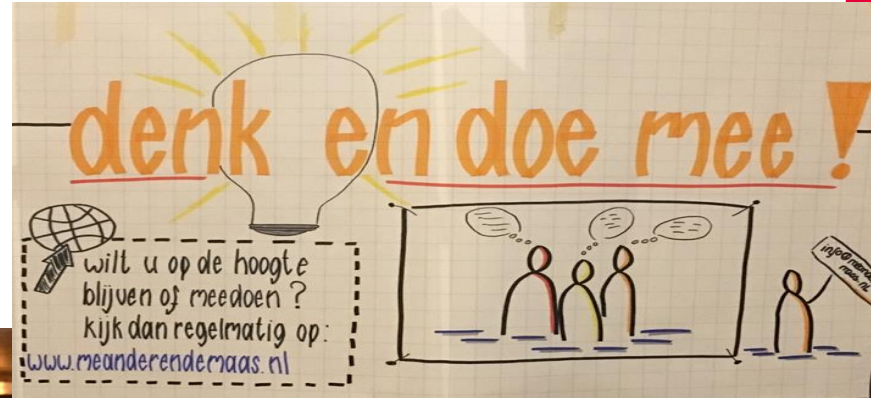 denk en doe mee!
wilt u op de hoogte
blijven of meedoen?
kijk dan regelmatig op:
www.meanderendemaas.nl
maas.nl